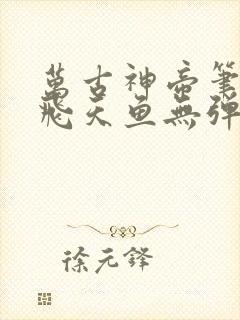 萬古神帝筆
飛天魚無彈
徐元鋒